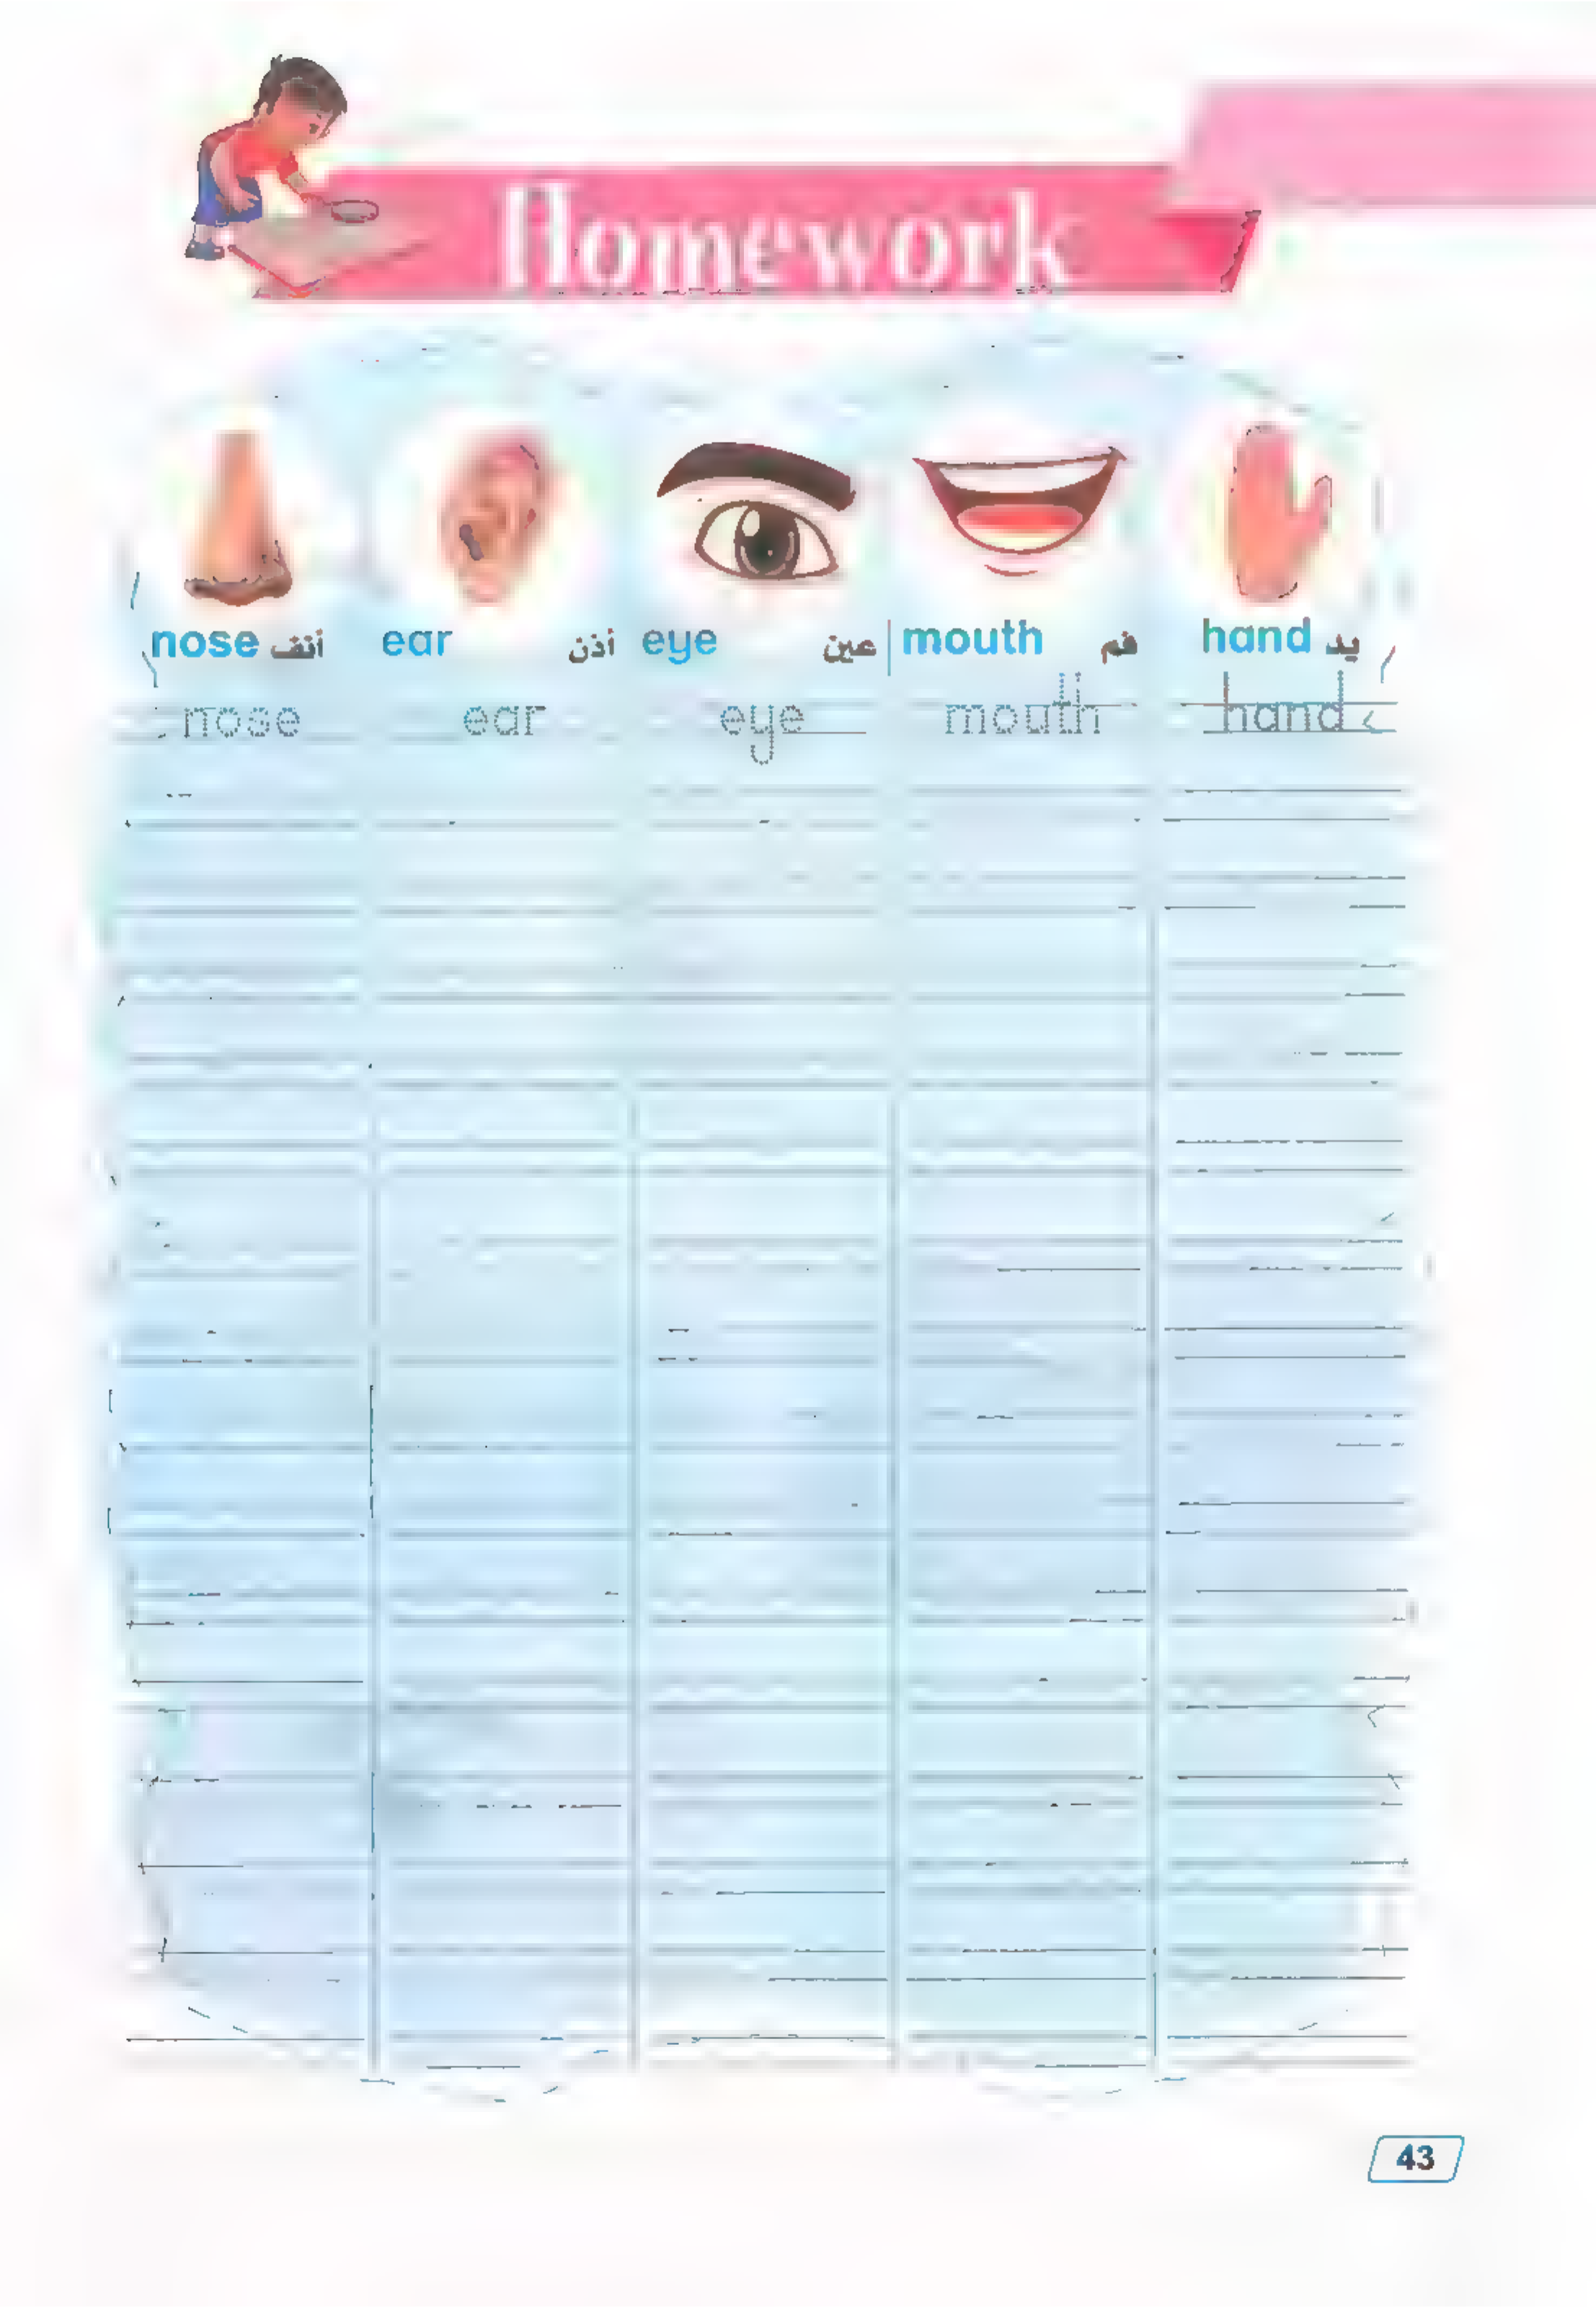 Homework
nose أنف ear أذن eye عين mouth فم hand يد
nose ear eye mouth hand
43